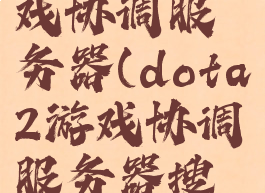 戏协调服
务器(dota
2游戏协调
服务器搜